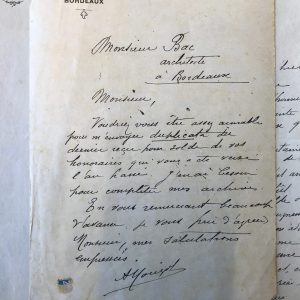 BORDEAUX
Monsieur Bac
architecte
à Bordeaux
Monsieur,
Voudriez vous être assez aimable
pour m'envoyer duplicata du
dernier reçu pour solde de vos
honoraires qui vous a été versé
l'an passé. J'en ai besoin
pour compléter mes archives.
En vous remerciant beaucoup
d'avance, je vous prie d'agréer
Monsieur, mes salutations
empressées.